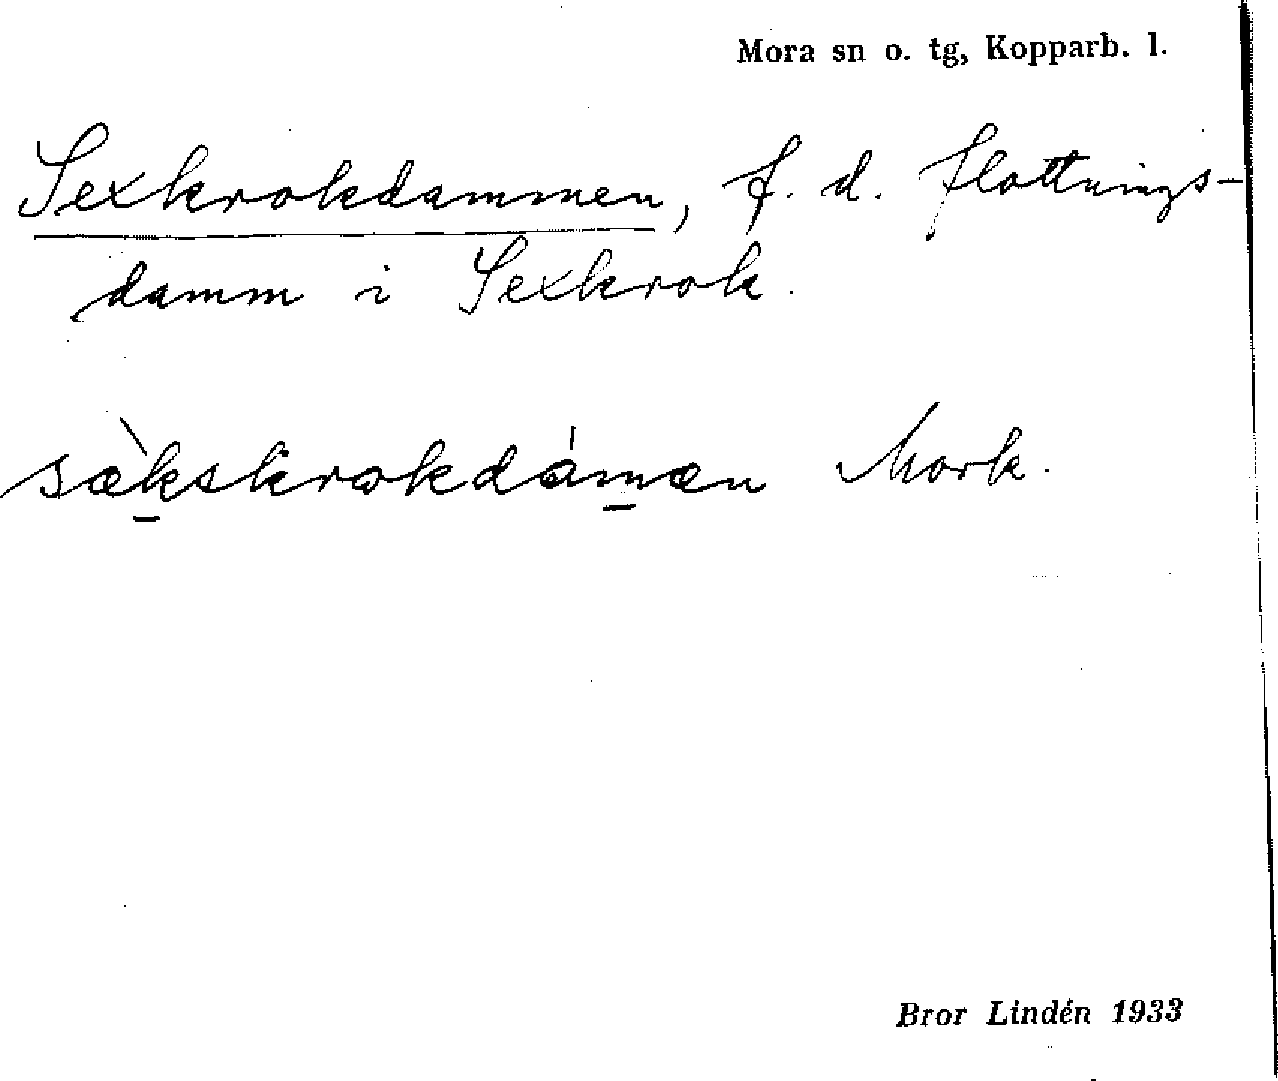 Mora sn o. tg, Kopparb. l.
Sexkrokdammen, f. d. flottnings-
damm i Sexkrok.
sæ̀kskrokdámæn Mork.
Bror Lindén 1933